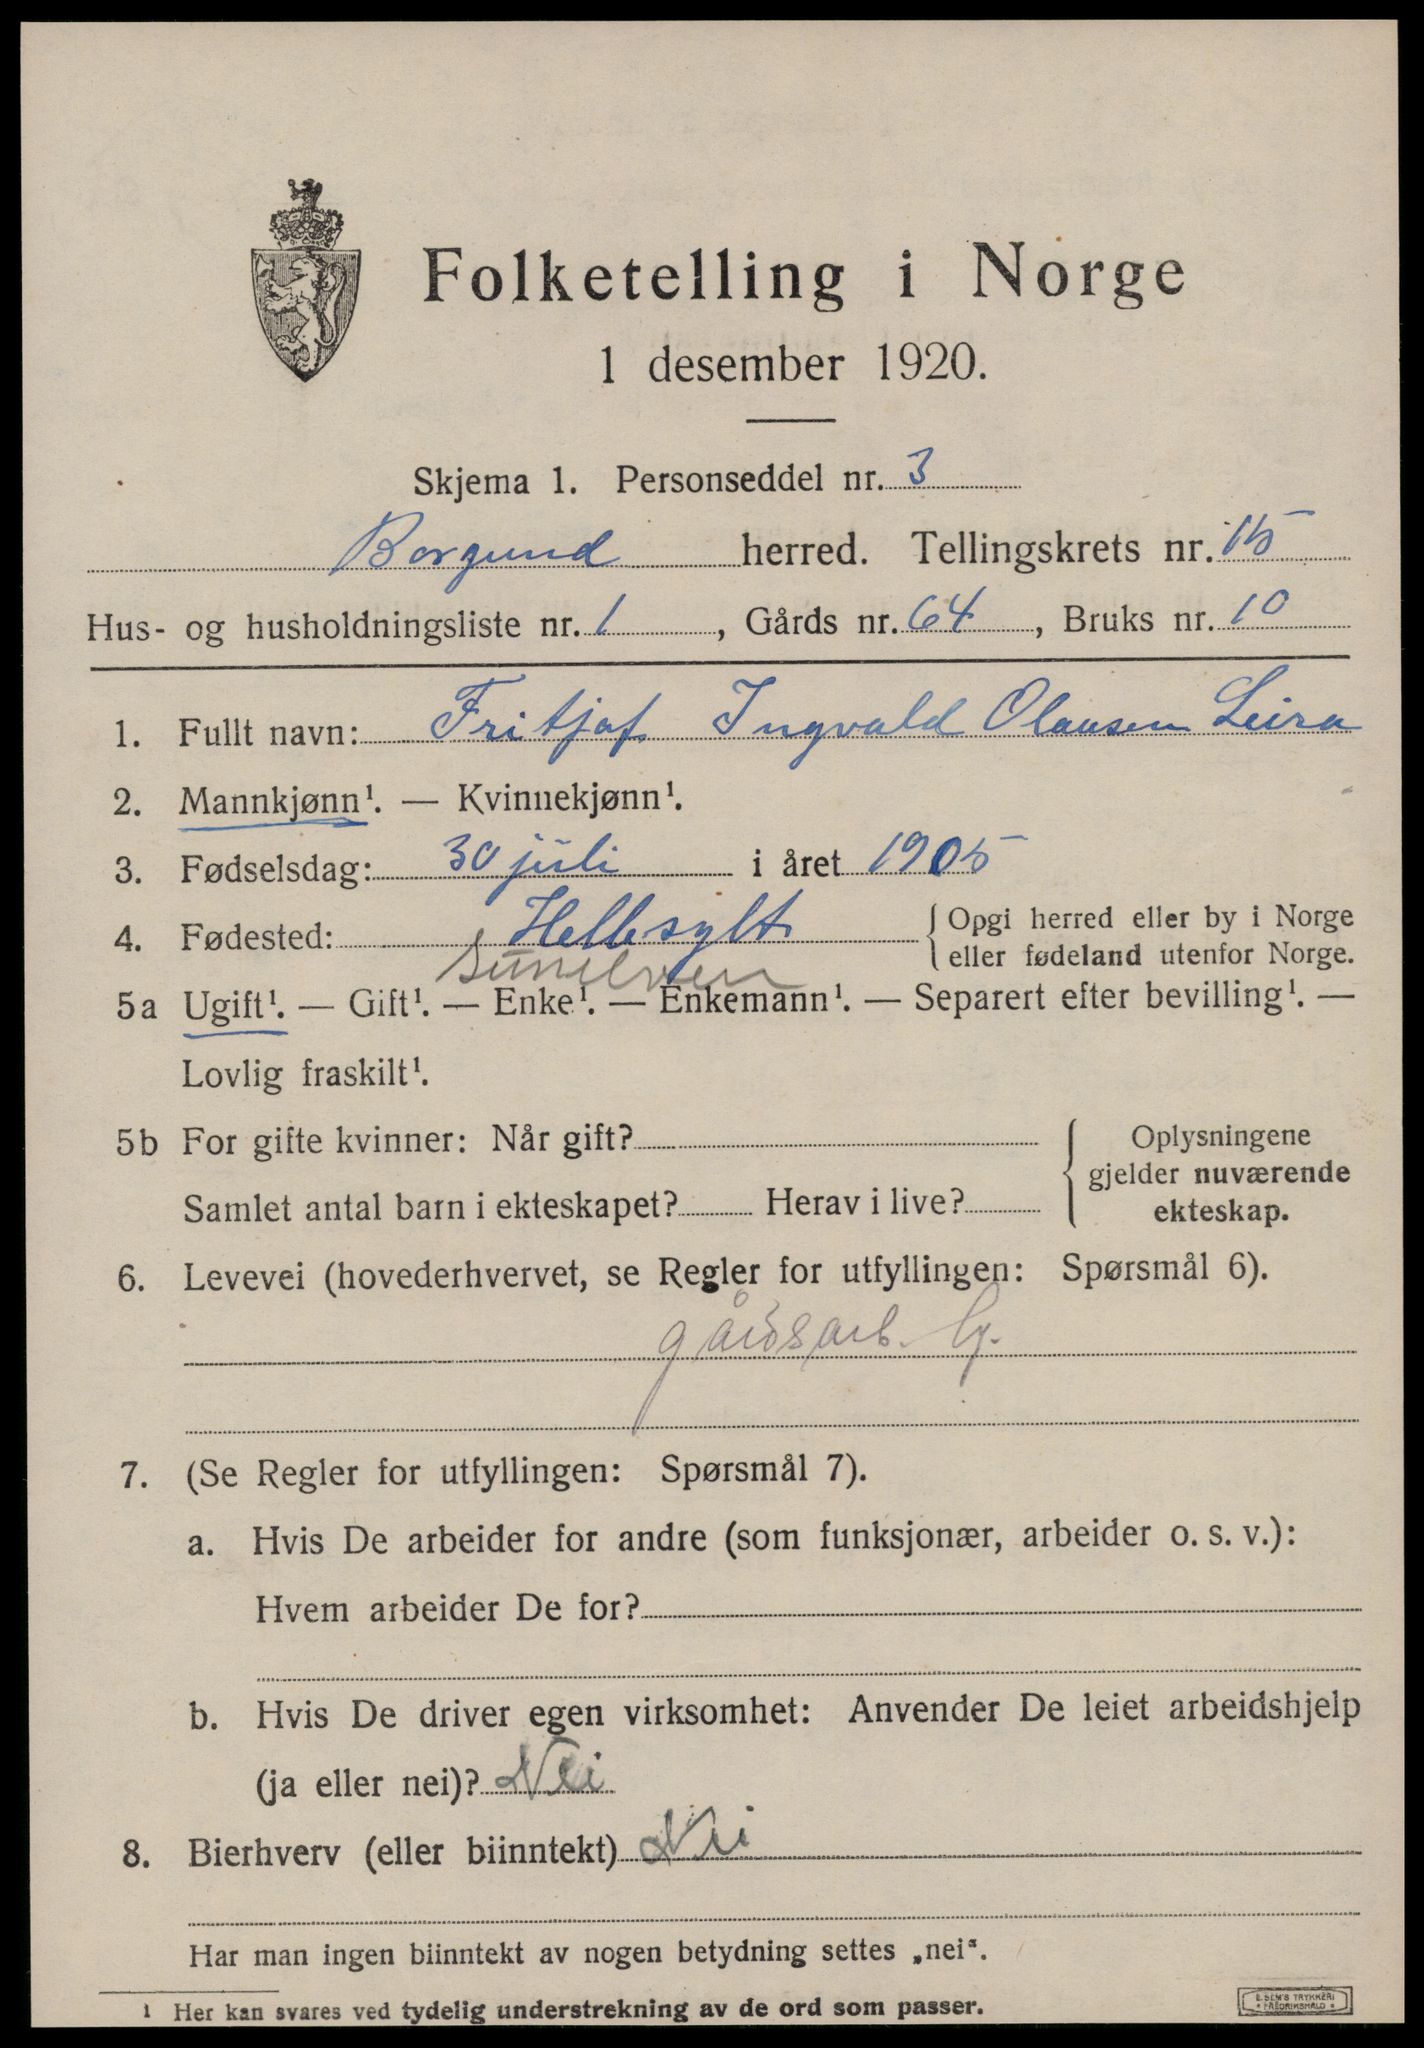 Folketelling i Norge
1 desember 1920.
Skjema 1. Personseddel nr. 3
Borgund herred. Tellingskrets nr. 15
Hus- og husholdningsliste nr. 1, Gårds nr. 64, Bruks nr. 10
1. Fullt navn: Fritjof Ingvald Olausen Leira
2. Mannkjønn¹. — Kvinnekjønn¹.
3. Fødselsdag: 30 juli i året 1905
4. Fødested: Hellesylt { Opgi herred eller by i Norge
eller fødeland utenfor Norge.
Sunelven
5a Ugift¹. — Gift¹. — Enke¹. — Enkemann¹. — Separert efter bevilling¹. —
Lovlig fraskilt¹.
5b For gifte kvinner: Når gift? { Oplysningene
gjelder nuværende
Samlet antal barn i ekteskapet? Herav i live? ekteskap.
6. Levevei (hovederhvervet, se Regler for utfyllingen: Spørsmål 6).
gårdsarb.
7. (Se Regler for utfyllingen: Spørsmål 7).
a. Hvis De arbeider for andre (som funksjonær, arbeider o. s. v.):
Hvem arbeider De for?
b. Hvis De driver egen virksomhet: Anvender De leiet arbeidshjelp
(ja eller nei)? Nei
8. Bierhverv (eller biinntekt) Nei
Har man ingen biinntekt av nogen betydning settes „nei".
1 Her kan svares ved tydelig understrekning av de ord som passer.
E. SEM'S TRYKKERI
FREDRIKSHALD